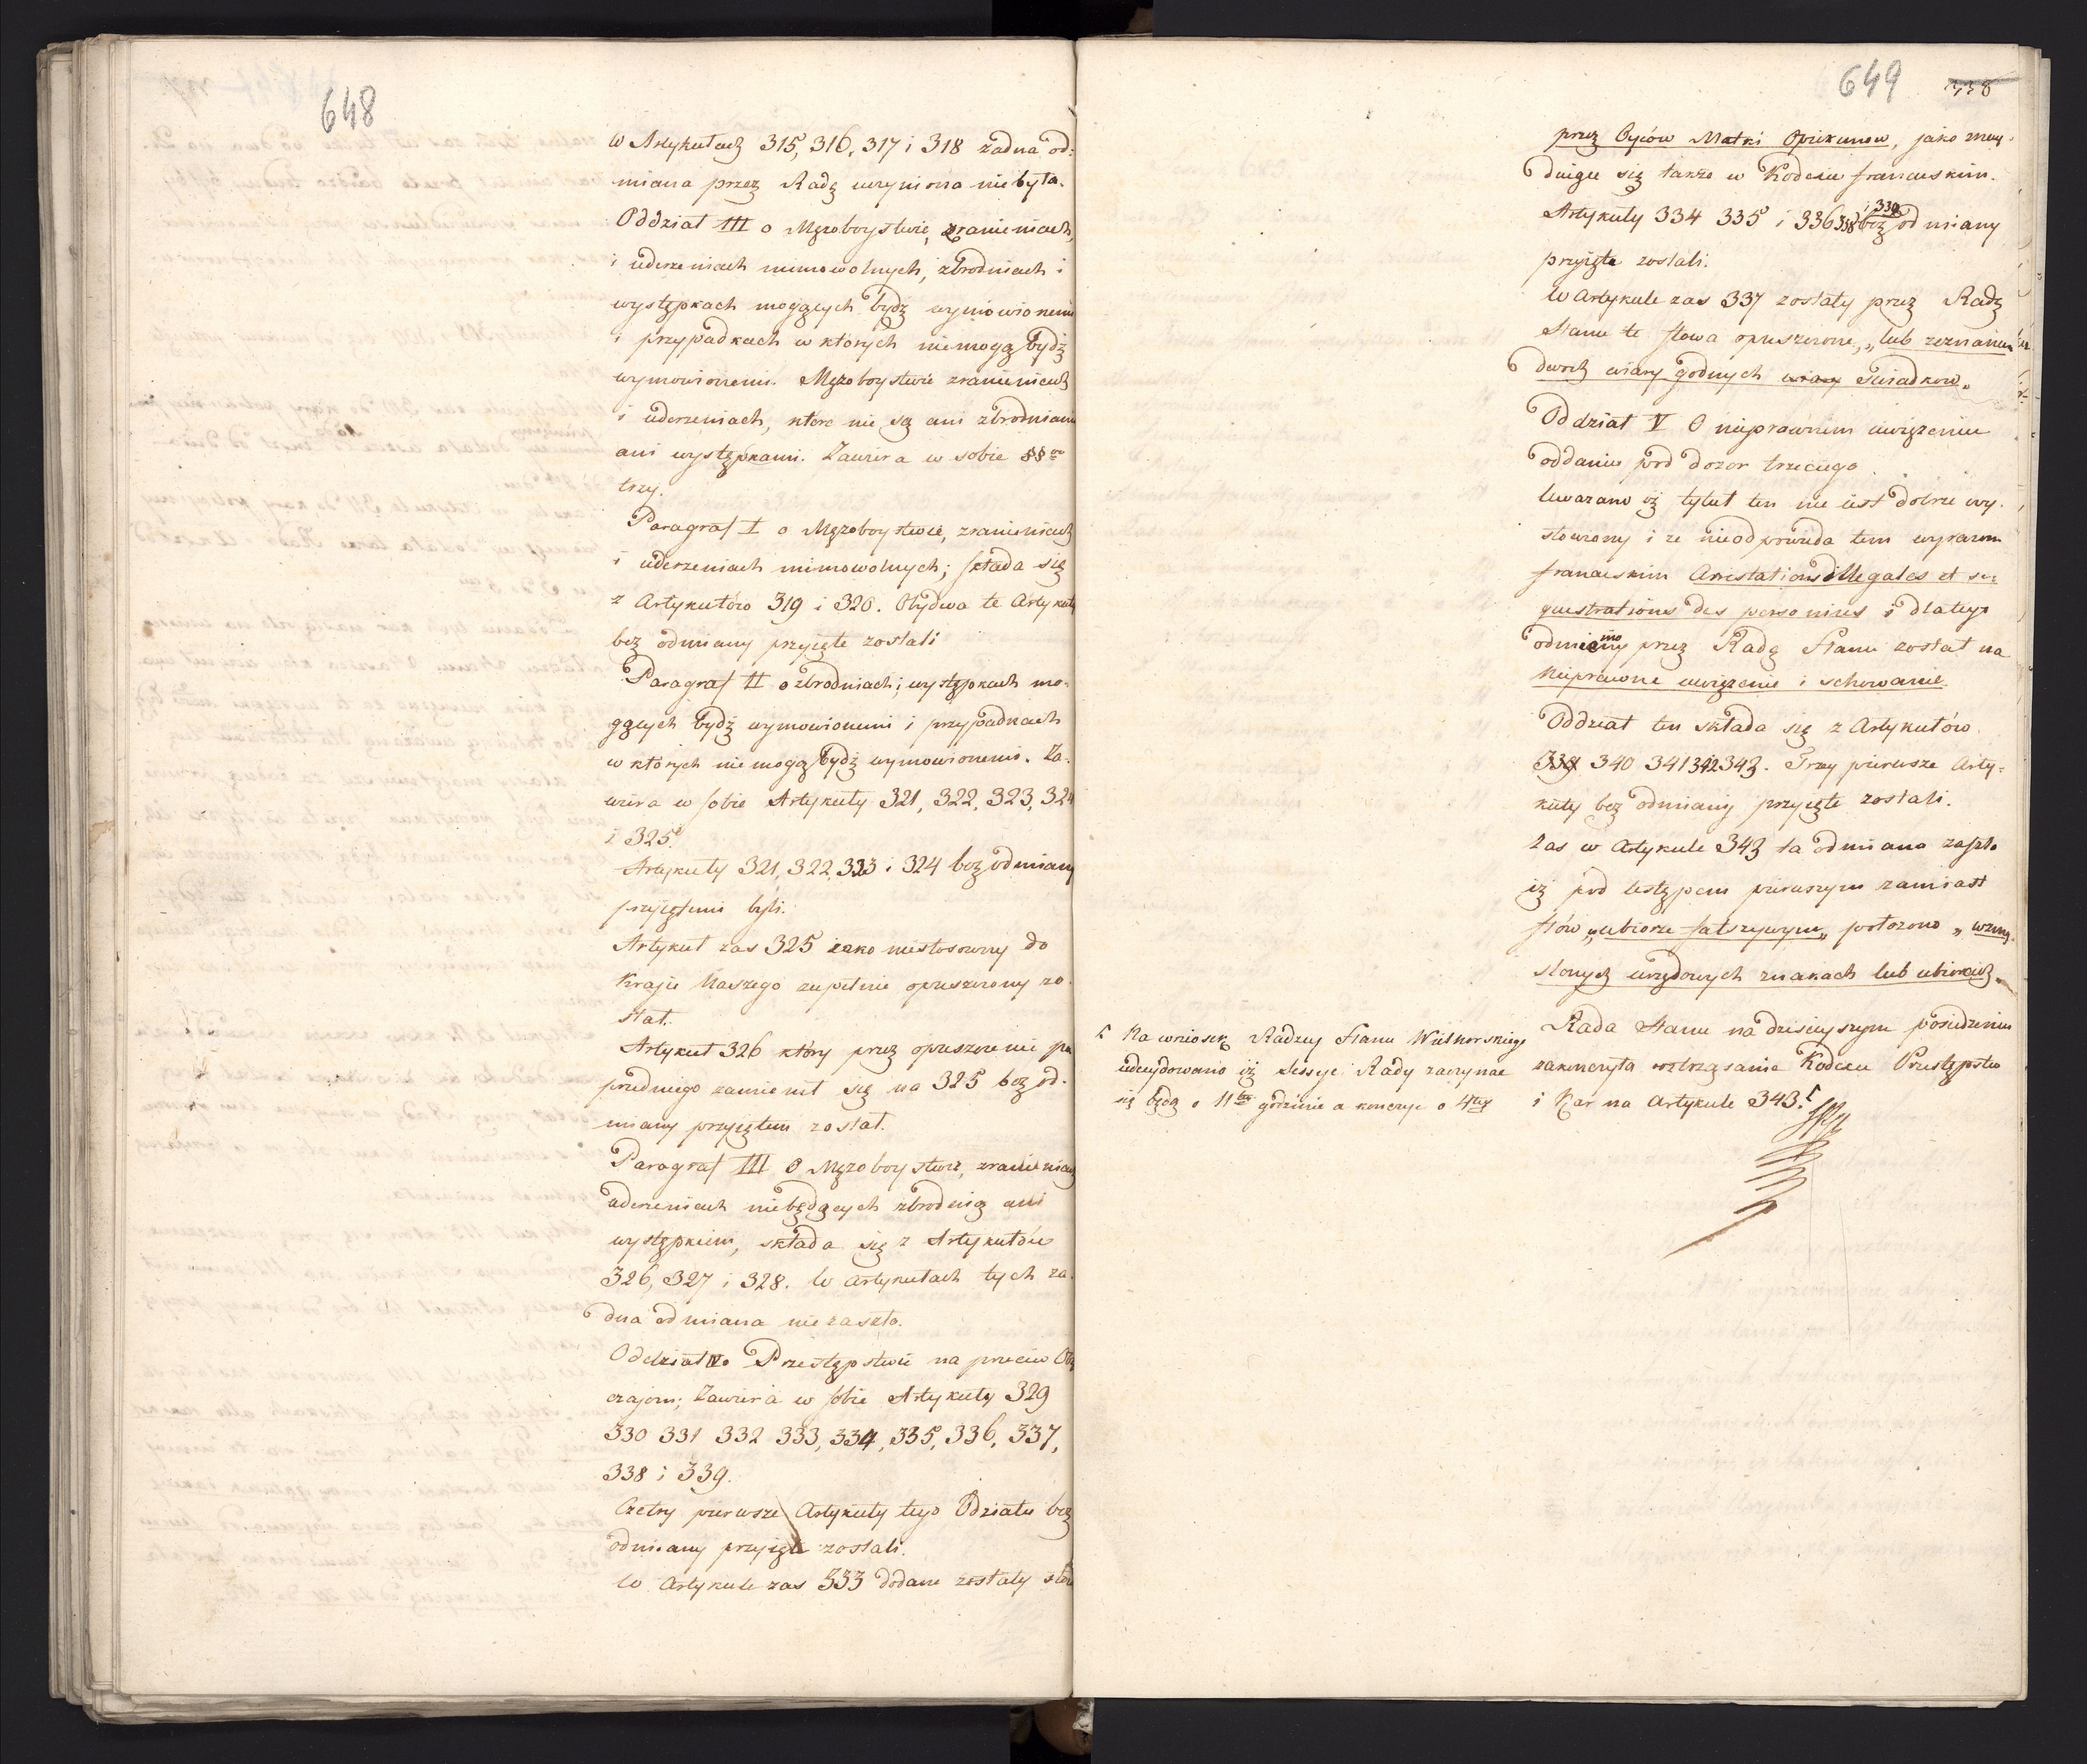 648
w Artykułach 315, 316, 317 i 318 żadna od:
miana przez Radę uczyniona niebyła.
Oddział III o Mężoboystwie, zranieniach,
i uderzeniach mimowolnych, zbrodniach i
występkach mogących bydź wymowionemi
i przypadkach w których niemogą bydź
wymowionemi. Mężoboystwie zranieniach
i uderzeniach, które nie są ani zbrodniami
ani występkami. Zawiera w sobie §§
trzy.
Paragraf I o Mężoboystwie, zranieniach
i uderzeniach mimowolnych; składa się
z Artykułów 319 i 320. Obydwa te Artykuły
bez odmiany przyięte zostali
Paragraf II o zbrodniach i występkach mo-
gących bydź wymowionemi i przypadkach
w których niemogą bydź wymowionemi. Za-
wiera w sobie Artykuły 321, 322, 323, 324
i 325.
Artykuły 321, 322, 323 i 324 bez odmiany
przyiętemi byli.
Artykuł zas 325 iako niestosowny do
Kraju Naszego zupełnie opuszczony zo-
stał.
Artykuł 326 który przez opuszczenie po
przedniego zamienił się na 325 bez od-
miany przyiętem został.
Paragraf III o Mężoboystwie, zranieniach
uderzeniach niebędących zbrodnią ani
występkiem, składa się z Artykułów
326, 327 i 328. w Artykułach tych ża-
dna odmiana nie zaszła.
Oddział IV o Przestępstwie na przeciw Oby
czajom; Zawiera w sobie Artykuły 329
330 331 332 333, 334, 335, 336, 337,
338 i 339.
Cztery pierwsze Artykuły tego Odziału bez
odmiany przyięte zostali.
w Artykule zas 333 dodane zostały słowa
649 338
przez Oyców Matki Opiekunow, jako znay-
duigce się także w Kodexie francuskim.
Artykuły 334 335 i 336 338 i 339 bez odmiany
przyięte zostali.
w Artykule zas 337 zostały przez Radę
Stanu te słowa opuszczone, „lub zeznaniem
dwoch wiary godnych wiary Swiadkow„
Oddział V O nieprawnem uwięzieniu
oddaniu pod dozor trzeciego
Uwazano iż tytuł ten nie iest dobrze wy-
słowiony i ze nieodpowiada tem wyrazom
francuskim Arrestations illegales et se-
questrations des personnes i dlatego
odmieniony przez Radę Stanu został na
Nieprawne uwięzienie i schowanie.
Oddział ten składa się z Artykułów
339 340 341 342 343. Trzy pierwsze Arty-
kuły bez odmiany przyięte zostali.
Zas w Artykule 343 ta odmiana zaszła
iż pod Ustępem pierwszym zamiast
słów „ubiorze fałszywym„ położono „wzmy-
slonych urzędowych znakach lub ubiorach„
Rada Stanu na dzisieyszym posiedzeniu
zakonczyła roztrząsanie Kodexu Przestępstw
i Kar na Artykule 343.
Na wniosek Radzcy Stanu Wielhorskiego
udecydowano iż Sessye Rady zaczynac
się będą o 11tey godzinie a konczyc o 4tey